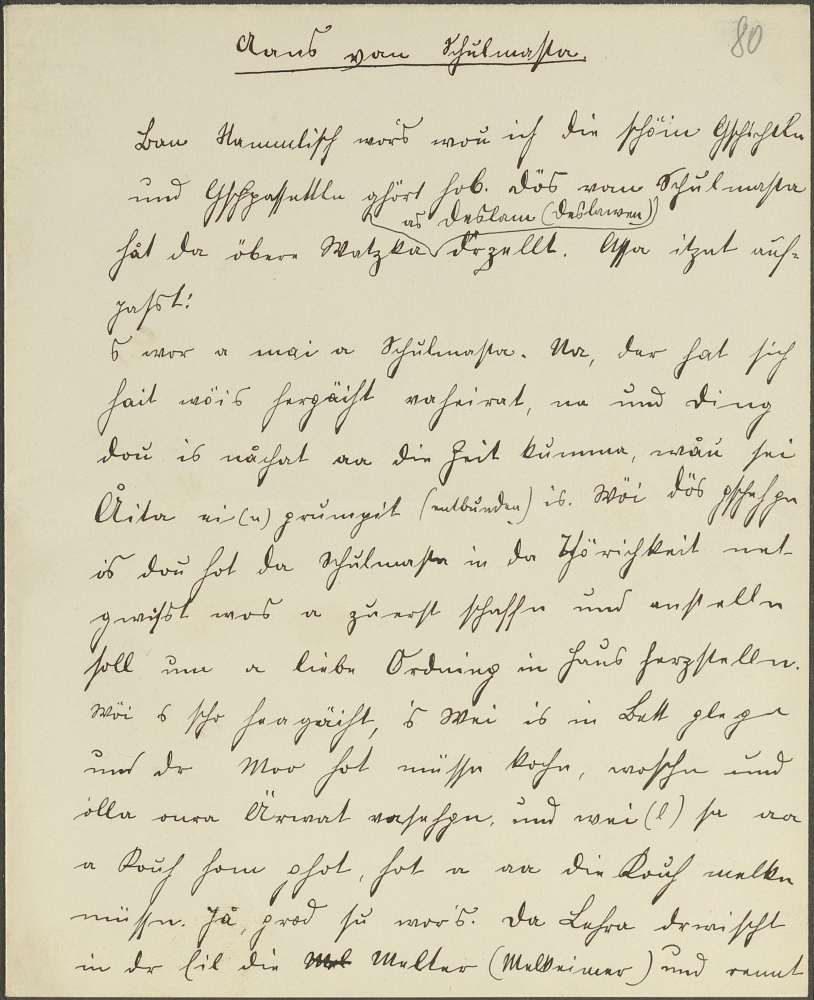 80
Aans van Schulmasta.
Ban Stammtisch wors wou ich die schöin Gschichtln
und Gschpassettln ghört hob. Dös vom Schulmasta
as Deslam (Deslawen)
håt da öbere Watzka drzellt. Assa itzat auf-
passt:
S wor a mai a Schulmasta. Na, der hat sich
hait wöis hergäiht vaheirat, na und ding
dou is nåchat aa die Zeit kumma, wåu sei
Åita ni(e) prumpit (entbunden) is. Wöi dös gschehgn
is dou hot da Schulmasta in da Thörichkeit net
gwisst wos a zuerst schaffn und anstelln
soll um a liebe Ordning in Haus herzstelln.
Wöi s scho heagäiht, 's Wei is in Bett glegn
und dr Moo hot müssn kochn, woschn und
ölla anra Ärwat vasehgn, und wei(l) sa aa
a Kouh hom ghot, hot a aa die Kouh melkn
müssn. Jå, grod su wor's. Da Lehra drwischt
in dr Eil die Melter (Melkeimer) und rennt